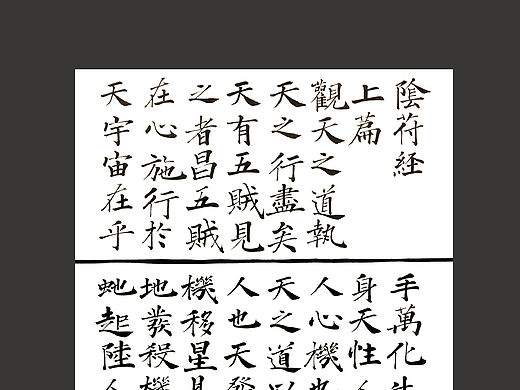 陰符経
上篇
觀天之道執
天之行盡矣
天有五賊見
之者昌五賊
在心施行於
天宇宙在乎
手萬化生
身天性人
人心機也
天之道以
人也天發
機移星
地發殺機
虵起陸